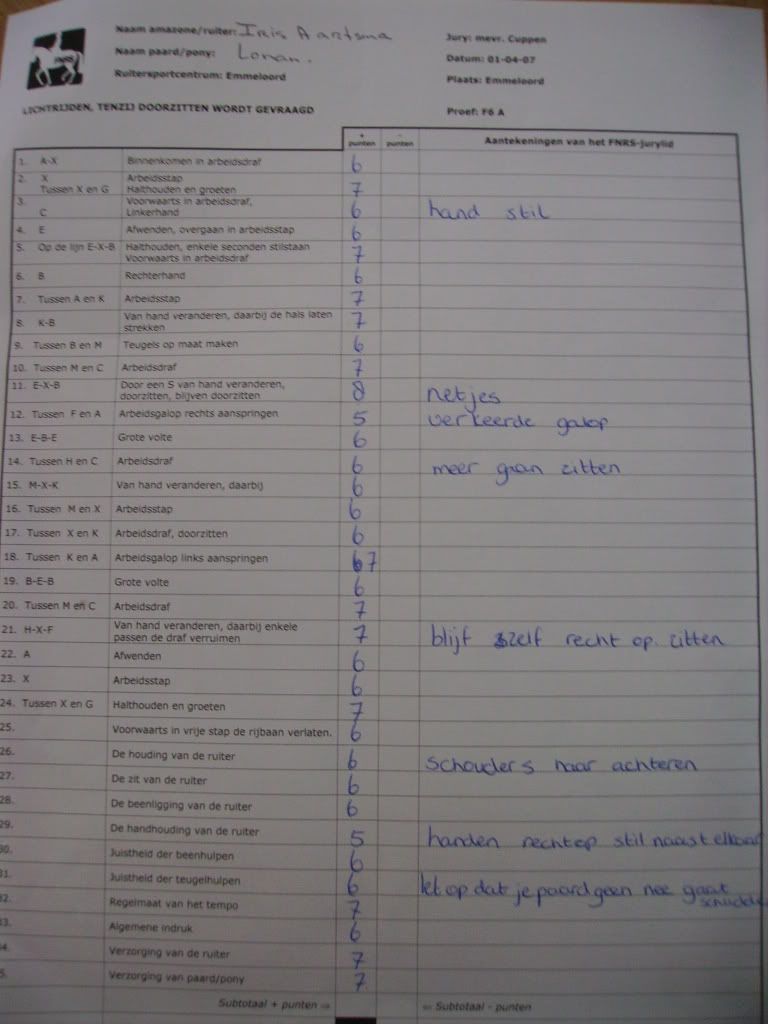 FNRS
Naam amazone/ruiter: Iris Aartsma
Jury: mevr. Cuppen
Naam paard/pony: Lonan.
Datum: 01-04-07
Ruitersportcentrum: Emmeloord
Plaats: Emmeloord
LICHTRIJDEN, TENZIJ DOORZITTEN WORDT GEVRAAGD
Proef: F6 A
+ punten - punten Aantekeningen van het FNRS-jurylid
1. A-X Binnenkomen in arbeidsdraf 6
2. X Arbeidsstap
Tussen X en G Halthouden en groeten 7
3. Voorwaarts in arbeidsdraf,
C Linkerhand 6 hand stil
4. E Afwenden, overgaan in arbeidsstap 6
5. Op de lijn E-X-B Halthouden, enkele seconden stilstaan 7
Voorwaarts in arbeidsdraf
6. B Rechterhand 6
7. Tussen A en K Arbeidsstap 7
8. K-B Van hand veranderen, daarbij de hals laten 7
strekken
9. Tussen B en M Teugels op maat maken 6
10. Tussen M en C Arbeidsdraf 7
11. E-X-B Door een S van hand veranderen, 8 netjes
doorzitten, blijven doorzitten
12. Tussen F en A Arbeidsgalop rechts aanspringen 5 verkeerde galop
13. E-B-E Grote volte 6
14. Tussen H en C Arbeidsdraf 6 meer gaan zitten
15. M-X-K Van hand veranderen, daarbij 6
16. Tussen M en X Arbeidsstap 6
17. Tussen X en K Arbeidsdraf, doorzitten 6
18. Tussen K en A Arbeidsgalop links aanspringen 7
19. B-E-B Grote volte 6
20. Tussen M en C Arbeidsdraf 7
21. H-X-F Van hand veranderen, daarbij enkele 7 blijf zelf recht op zitten
passen de draf verruimen
22. A Afwenden 6
23. X Arbeidsstap 6
24. Tussen X en G Halthouden en groeten 7
25. Voorwaarts in vrije stap de rijbaan verlaten. 6
26. De houding van de ruiter 6 schouders naar achteren
27. De zit van de ruiter 6
28. De beenligging van de ruiter 6
29. De handhouding van de ruiter 5 handen rechtop stil naast elkaar
30. Juistheid der beenhulpen 6
31. Juistheid der teugelhulpen 6 let op dat je paard geen nee gaat
32. Regelmaat van het tempo 7 schudden
33. Algemene indruk 6
4. Verzorging van de ruiter 7
5. Verzorging van paard/pony 7
Subtotaal + punten ⇒ ⇐ Subtotaal - punten